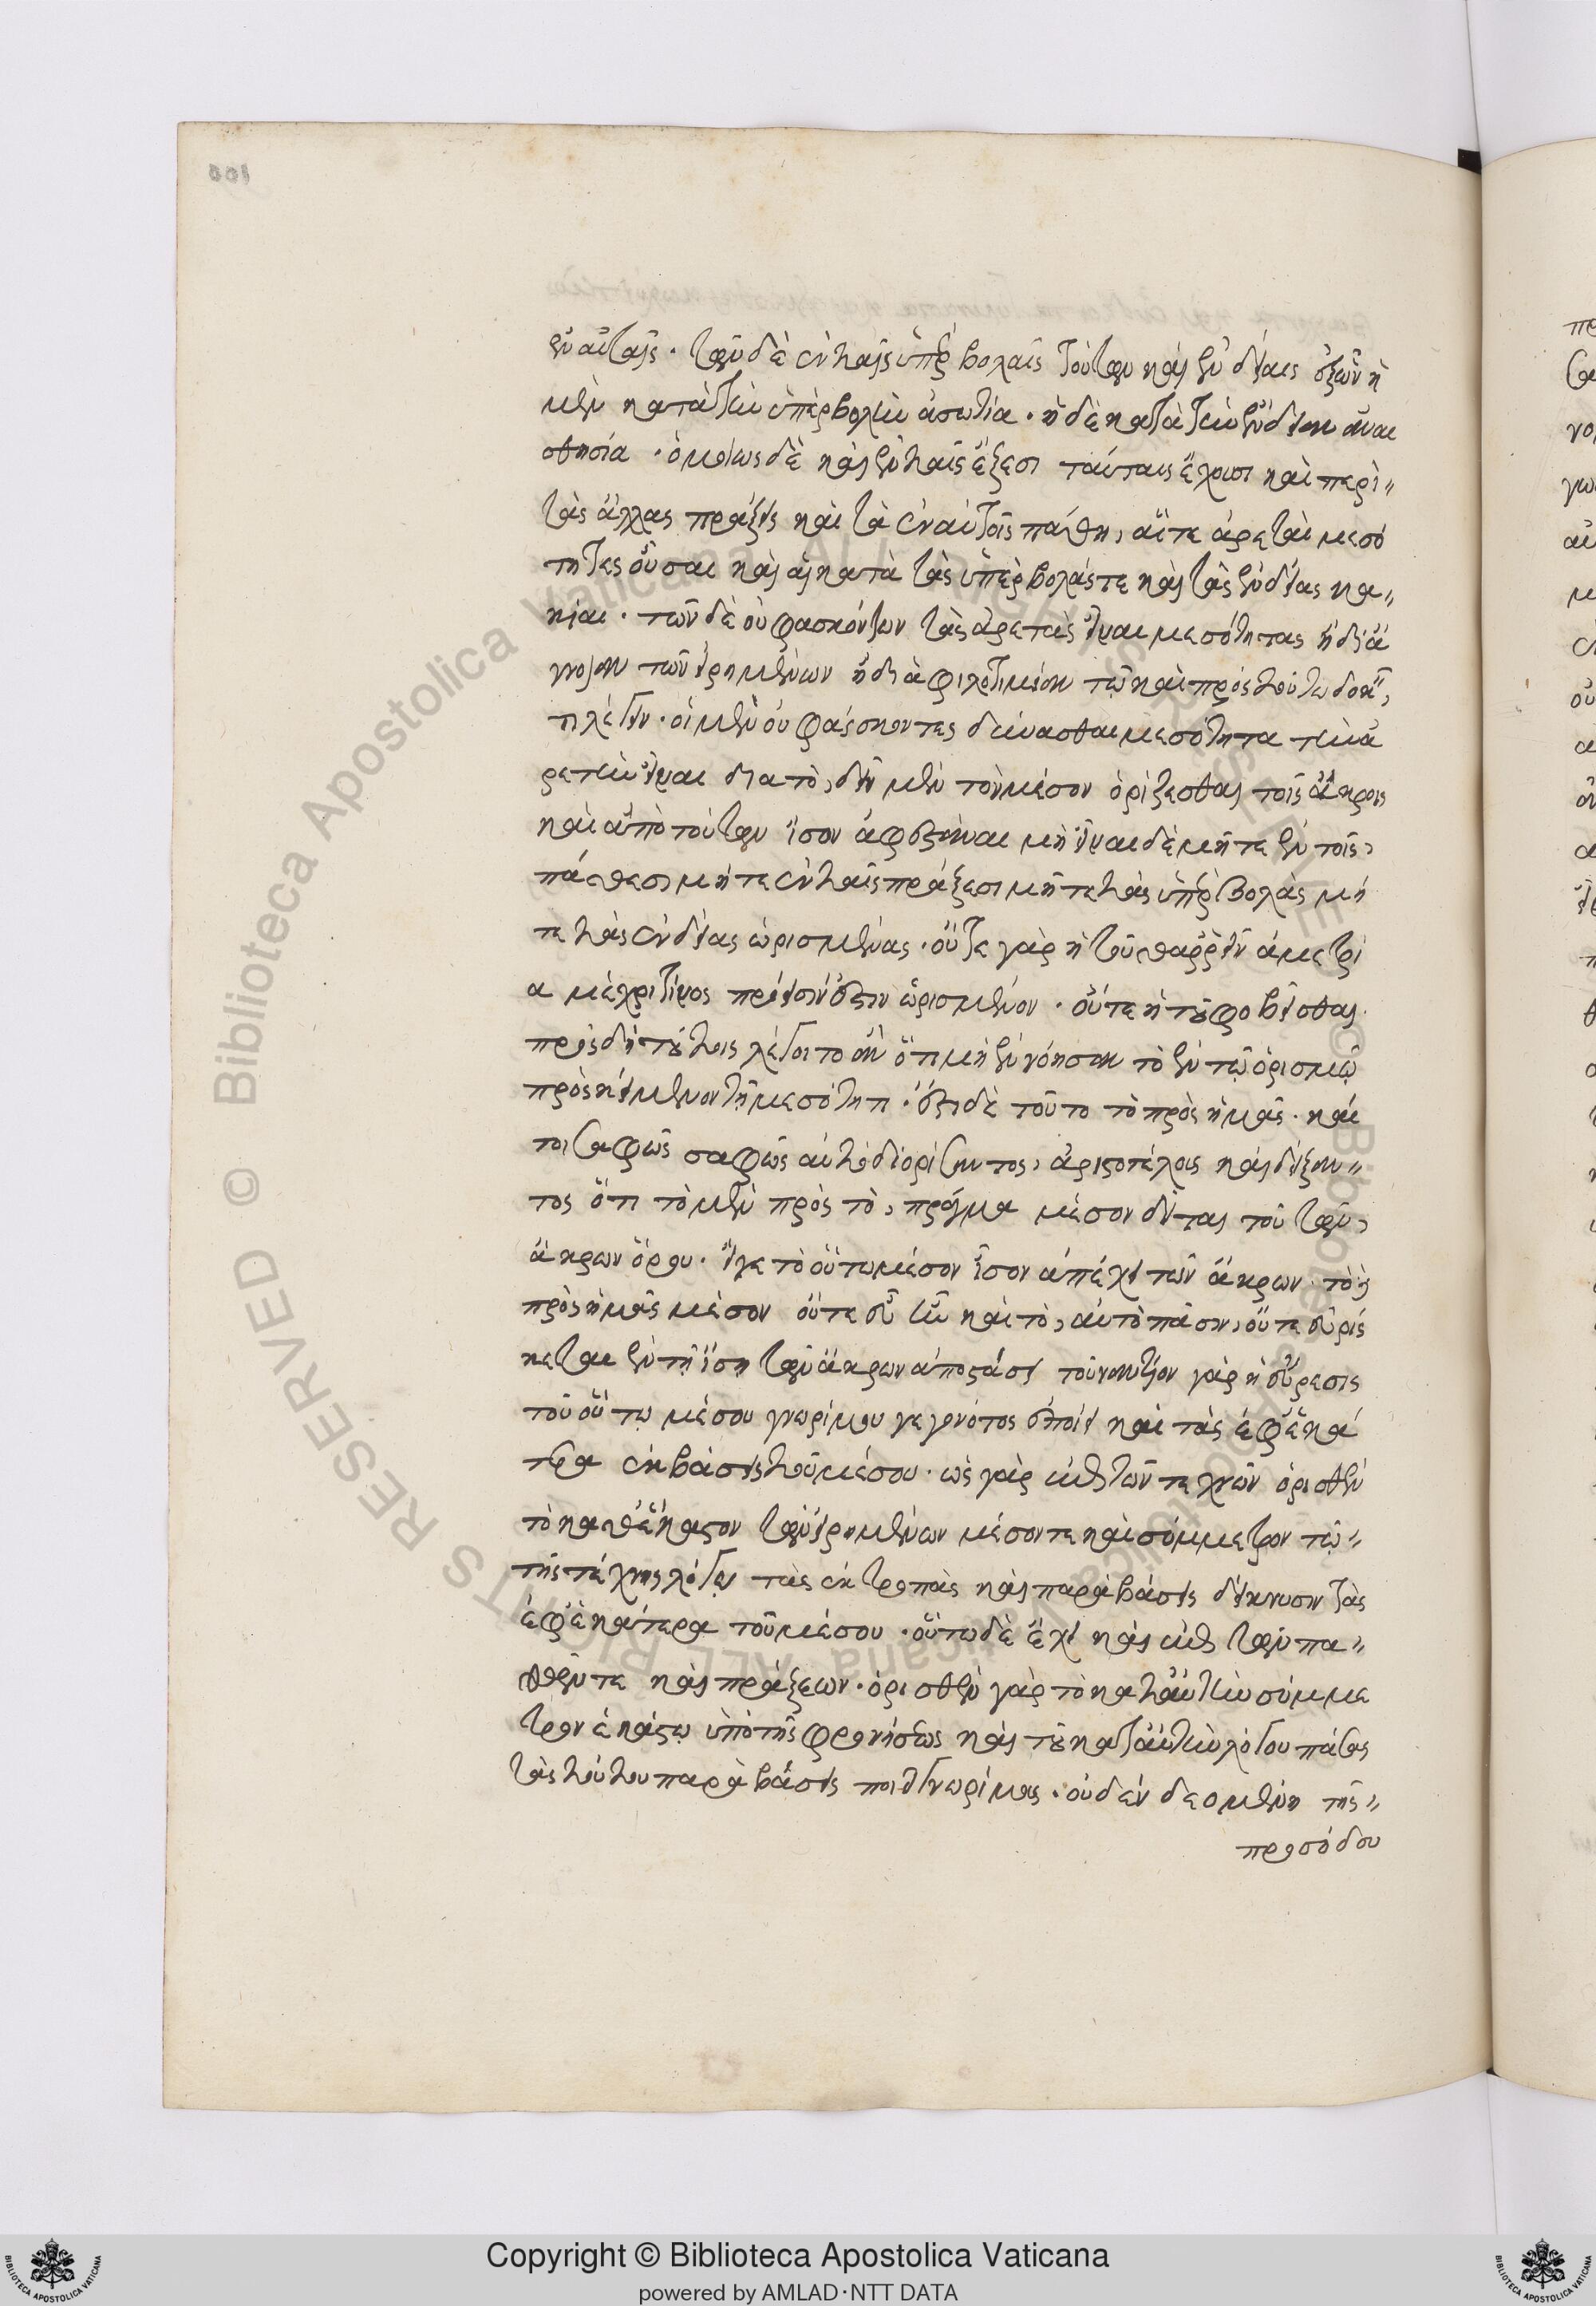 ἐν αὐταῖς. τῶν δὲ ἐν ταῖς ὑπερβολαῖς τούτων καὶ ἐνδείαις ἕξεων ἡ
μὲν κατὰ τὴν ὑπερβολὴν ἀσωτία. ἡ δὲ κατὰ τὴν ἔνδειαν ἀναι
σθησία. ὁμοίως δὲ καὶ ἐν ταῖς ἕξεσι ταύταις ἔχουσι καὶ περὶ
τὰς ἄλλας πράξεις καὶ τὰ ἐν αὐτοῖς πάθη, αἵ τε ἀρεταὶ μεσό
τητες οὖσαι καὶ αἱ κατὰ τὰς ὑπερβολάς τε καὶ τὰς ἐνδείας κα
κίαι. τῶν δὲ οὐ φασκόντων τὰς ἀρετὰς εἶναι μεσότητας ἢ δι' ἄ
γνοιαν τῶν εἰρημένων ἢ διὰ φιλοτιμίαν τῷ καὶ πρὸς τούτω δοκῇ,
τι λέγειν. οἱ μὲν οὐ φάσκοντες δύνασθαι μεσότητα τὴν ἀ
ρετὴν εἶναι διὰ τὸ, δεῖν μὲν τὸν μέσον ὁρίζεσθαι τοῖς ἄκροις
καὶ ἀπὸ τούτων ἴσον ἀφεστάναι μὴ εἶναι δὲ μήτε ἐν τοῖς,
πάθεσι μήτε ἐν ταῖς πράξεσι μήτε τὰς ὑπερβολὰς μή
τε τὰς ἐνδείας ὡρισμένας. οὔτε γὰρ ἡ τοῦ θαρρεῖν ἀμετρί
α μέχρι τίνος πρόεισιν ἔστιν ὡρισμένον. οὔτε ἡ τοῦ φοβεῖσθαι.
πρὸς δὴ τούτοις λέγοιτο ἂν ὅτι μὴ ἐνόησαν τὸ ἐν τῷ ὁρισμῷ
προσκείμενον τῇ μεσότητι. ἔστι δὲ τοῦτο τὸ πρὸς ἡμᾶς. καί
τοι σαφῶς σαφῶς αὐτὸ διορίσαντος, ἀριστοτέλους καὶ δείξαν
τος ὅτι τὸ μὲν πρὸς τὸ, πρᾶγμα μέσον δεῖται τοῦ τῶν,
ἄκρων ὅρου. εἴγε τὸ οὕτω μέσον ἴσον ἀπέχει τῶν ἄκρων. τὸ δὲ
πρὸς ἡμᾶς μέσον οὔτε ἓν ὂν καὶ τὸ, αὐτὸ πᾶσιν, οὔτε εὑρίσ
κεται ἐν τῇ ἴσῃ τῶν ἄκρων ἀποστάσει τοὐναντίον γὰρ ἡ εὕρεσις
τοῦ οὕτω μέσου γνωρίμου γεγονότος ποιεῖ καὶ τὰς ἐφ' ἑκά
τερα ἐκβάσεις τοῦ μέσου. ὡς γὰρ ἐπὶ τῶν τεχνῶν ὁρισθὲν
τὸ καθ' ἕκαστον τῶν εἰρημένων μέσον τε καὶ σύμμετρον τῷ
τῆς τέχνης λόγῳ τὰς ἐκτροπὰς καὶ παραβάσεις δείκνυσιν τὰς
ἐφ' ἑκάτερα τοῦ μέσου. οὕτω δὲ ἔχει καὶ ἐπὶ τῶν πα
θῶν τε καὶ πράξεων. ὁρισθὲν γὰρ τὸ κατ' αὐτὴν σύμμε
τρον ἑκάστῳ ὑπὸ τῆς φρονήσεως καὶ τοῦ κατ' αὐτὴν λόγου πάσας
τὰς τούτου παραβάσεις ποιεῖ γνωρίμους. οὐδὲν δεομένη τῆς
προσόδου